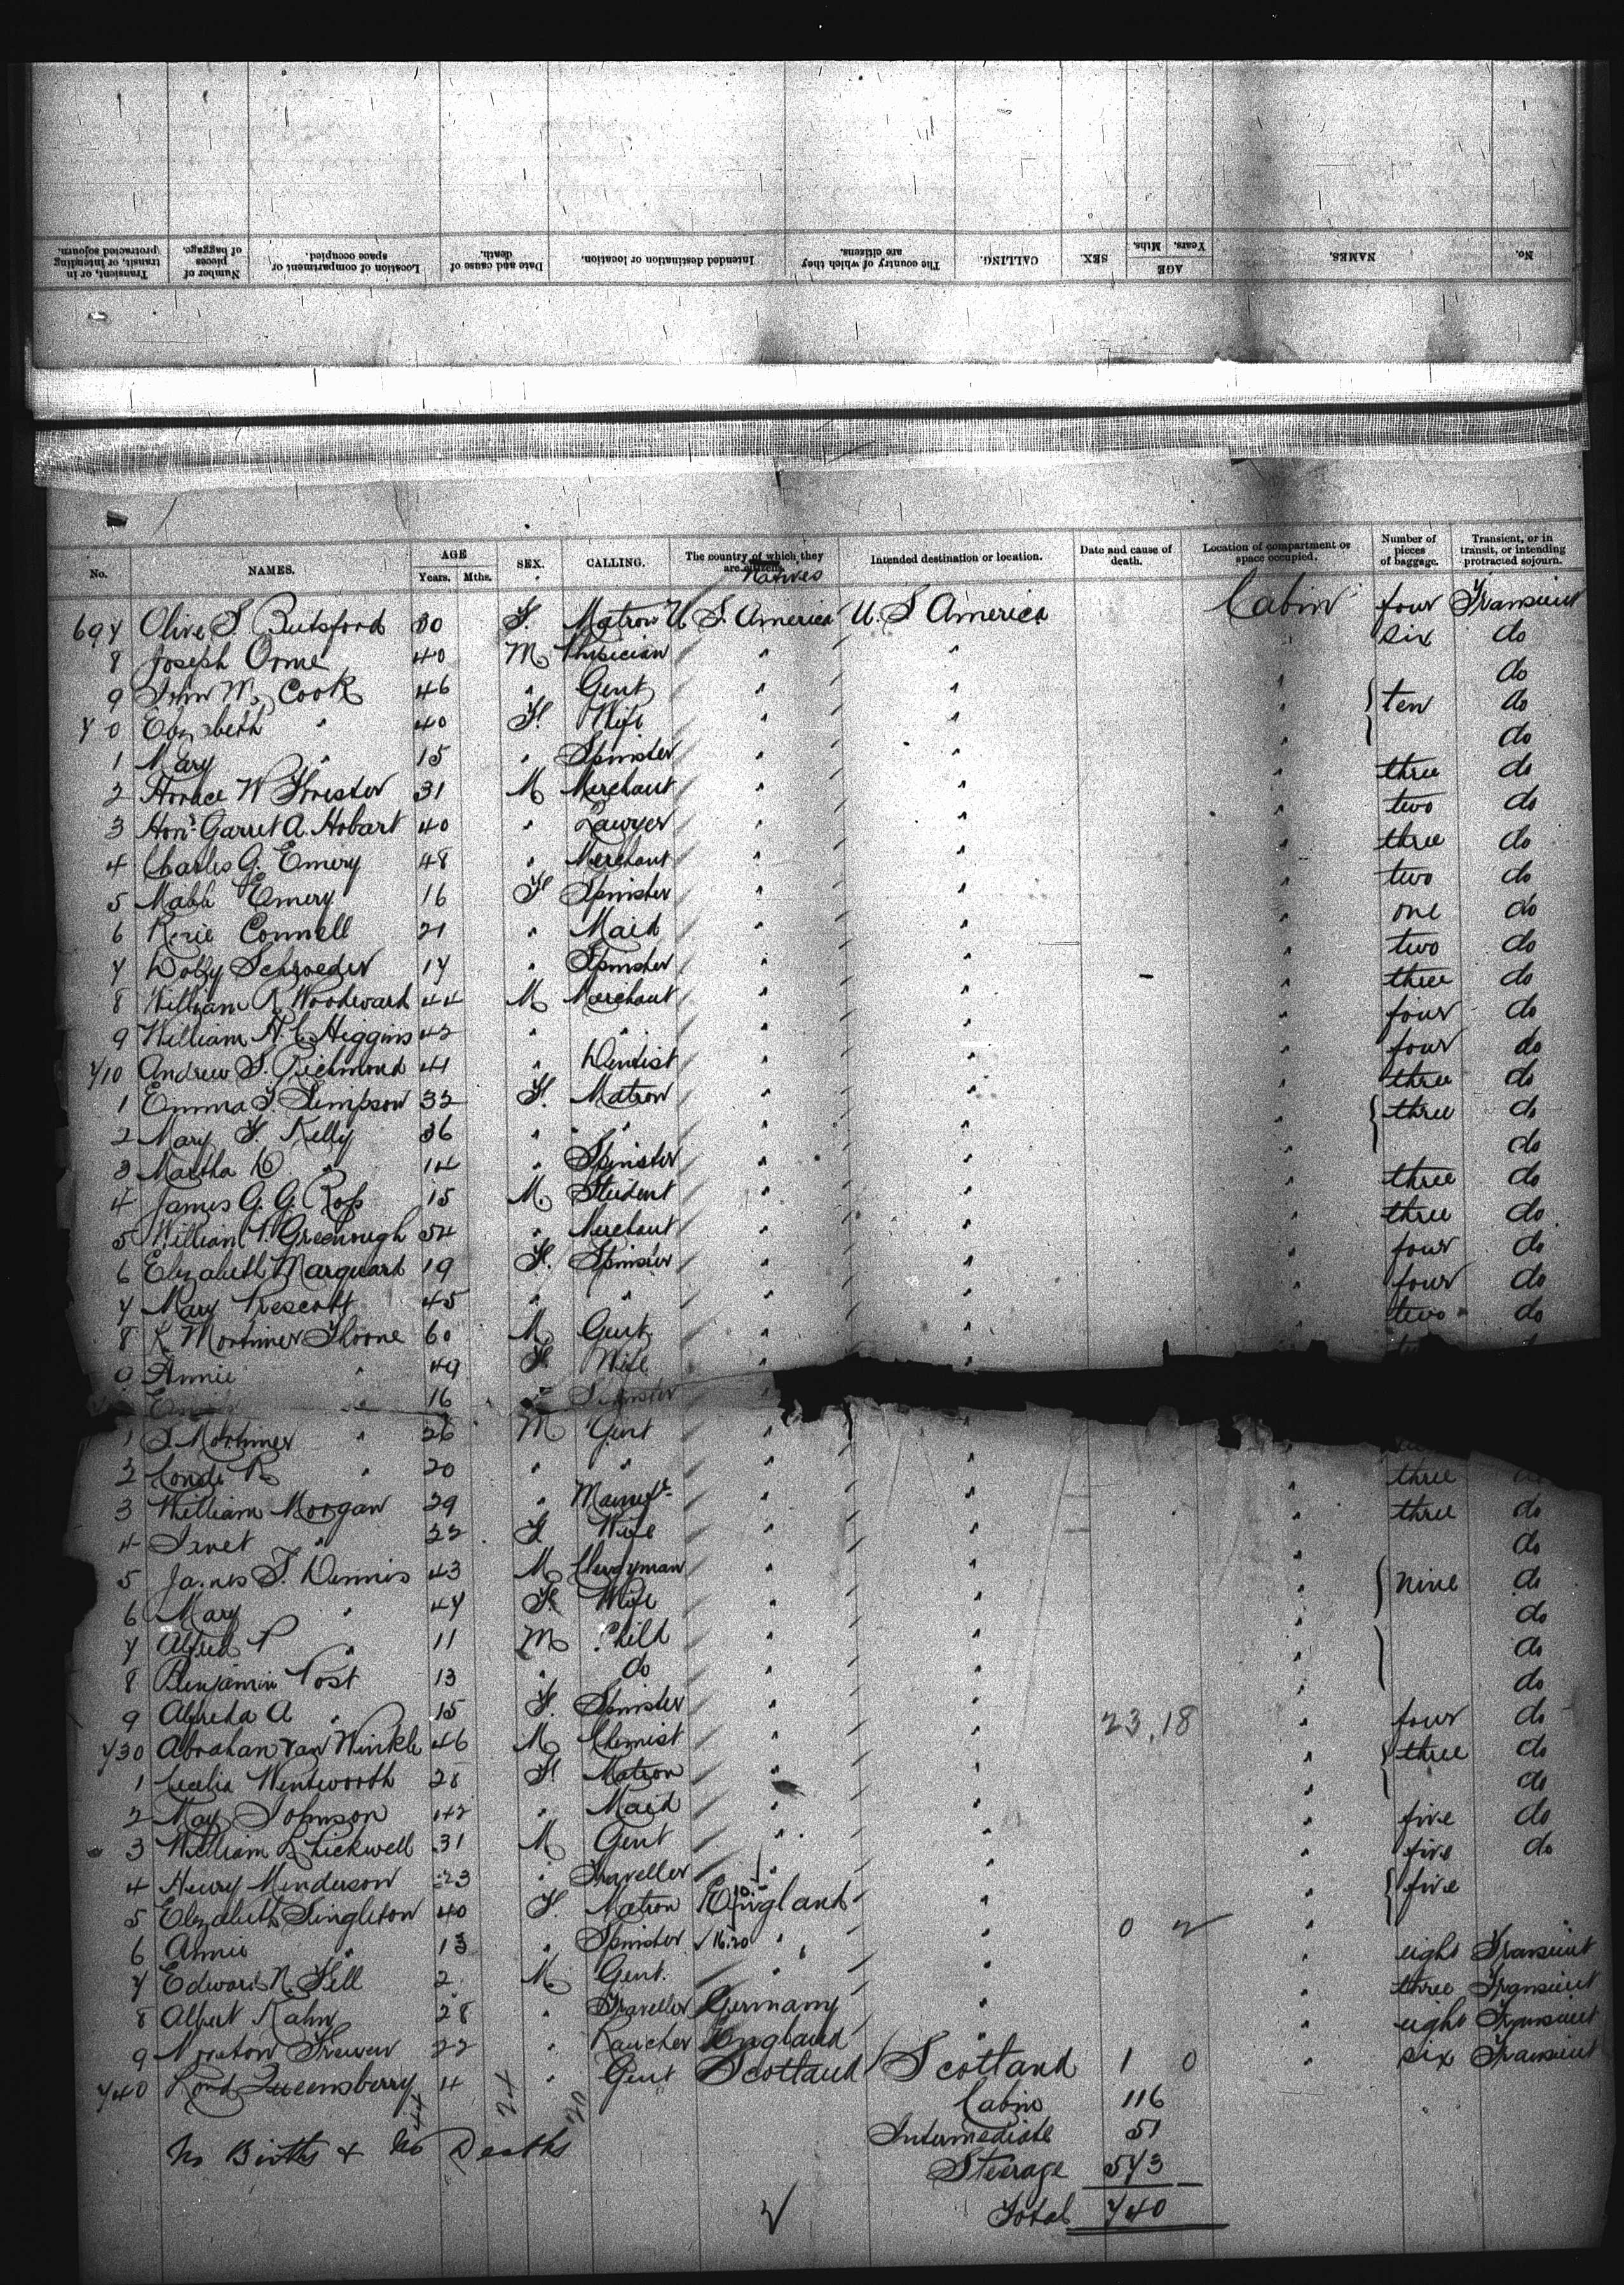 Transient, or in transit, or intending protracted sojourn. Number of pieces of baggage. Location of compartment or space occupied. Date and cause of death. Intended destination or location. The country of which they are citizens. CALLING. SEX. AGE Years. Mths. NAMES. No.
No. NAMES. AGE Years. Mths. SEX. CALLING. The country of which they are citizens. Natives Intended destination or location. Date and cause of death. Location of compartment or space occupied. Number of pieces of baggage. Transient, or in transit, or intending protracted sojourn.
697 Olive S. Butsford 30 F. Matron U. S. America U. S America Cabin four Transient
8 Joseph Orme 40 M Physician " " " six do
9 John M. Cook 46 " Gent " " " do
70 Elizabeth " 40 F. Wife " " " ten do
1 Mary " 15 " Spinster " " " do
2 Horace W 31 M Merchant " " " three do
3 Hon. Garret A. Hobart 40 " Lawyer " " " two do
4 Charles G. Emery 48 " Merchant " " " three do
5 Emery 16 F Spinster " " " two do
6 Connell 21 " Maid " " " one do
7 Dolly Schroeder 17 " Spinster " " " two do
8 William R Woodward 44 M Merchant " " " three do
9 William H. C. Higgins 42 " " " " " four do
710 Andrew S. Richmond 41 " Dentist " " " four do
1 Emma F. Simpson 32 F. Matron " " " three do
2 Mary F. Kelly 36 " " " " " three do
3 Martha D. " 14 " Spinster " " " do
4 James G. G. Ross 15 M. Student " " " three do
5 William Greenough 54 " Merchant " " " three do
6 Elizabeth Marquard 19 F. Spinster " " " four do
7 Mary Prescott 45 " " " " " four do
8 Mortimer Thorne 60 M Gent " " " two do
9 Annie " 49 F. Wife " "
16 " Spinster
1 Mortimer " 26 M Gent " "
2 " 20 " " " " " three
3 William Morgan 29 " " " " three do
4 Jenet " 22 F Wife " " " do
5 James T. Dennis 43 M Clergyman " " " nine do
6 Mary " 47 F. Wife " " " do
7 Alfred P " 11 M Child " " " do
8 Benjamin Post 13 " do " " " do
9 Alfreda A " 15 F. Spinster " " 23.18 " four do
730 Abraham van Winkle 46 M Chemist " " " three do
1 Cecelia Wentworth 28 F Matron " " " do
2 May Johnson 42 " Maid " " " five do
3 William 31 M Gent " " " five do
4 Henry 23 " Traveller " " " five
5 Elizabeth Singleton 40 F. Matron England " 0 "
6 Annie " 13 " Spinster 16.20 " " " eight Transient
7 Edward N. Fell 2 M. Gent. " " " three Transient
8 Albert Kahn 28 " Traveller Germany " " eight Transient
9 Moreton Frewen 22 " Rancher England " " six Transient
740 Lord Queensberry 4 " Gent Scotland Scotland 1 0
Cabin 116
Intermediate 51
No Births & No Deaths
Steerage 573
Total 740